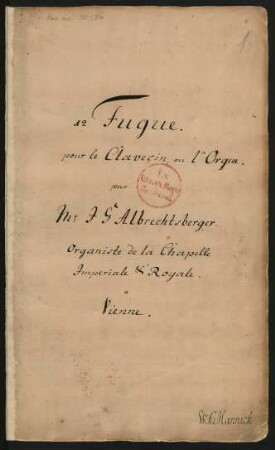 1
12 Fugue.
pour le Clavecin ou l'Orgue.
par
Mr J G Albrechtsberger
Organiste de la Chapelle
Imperiale & Royale.
a
Vienne.